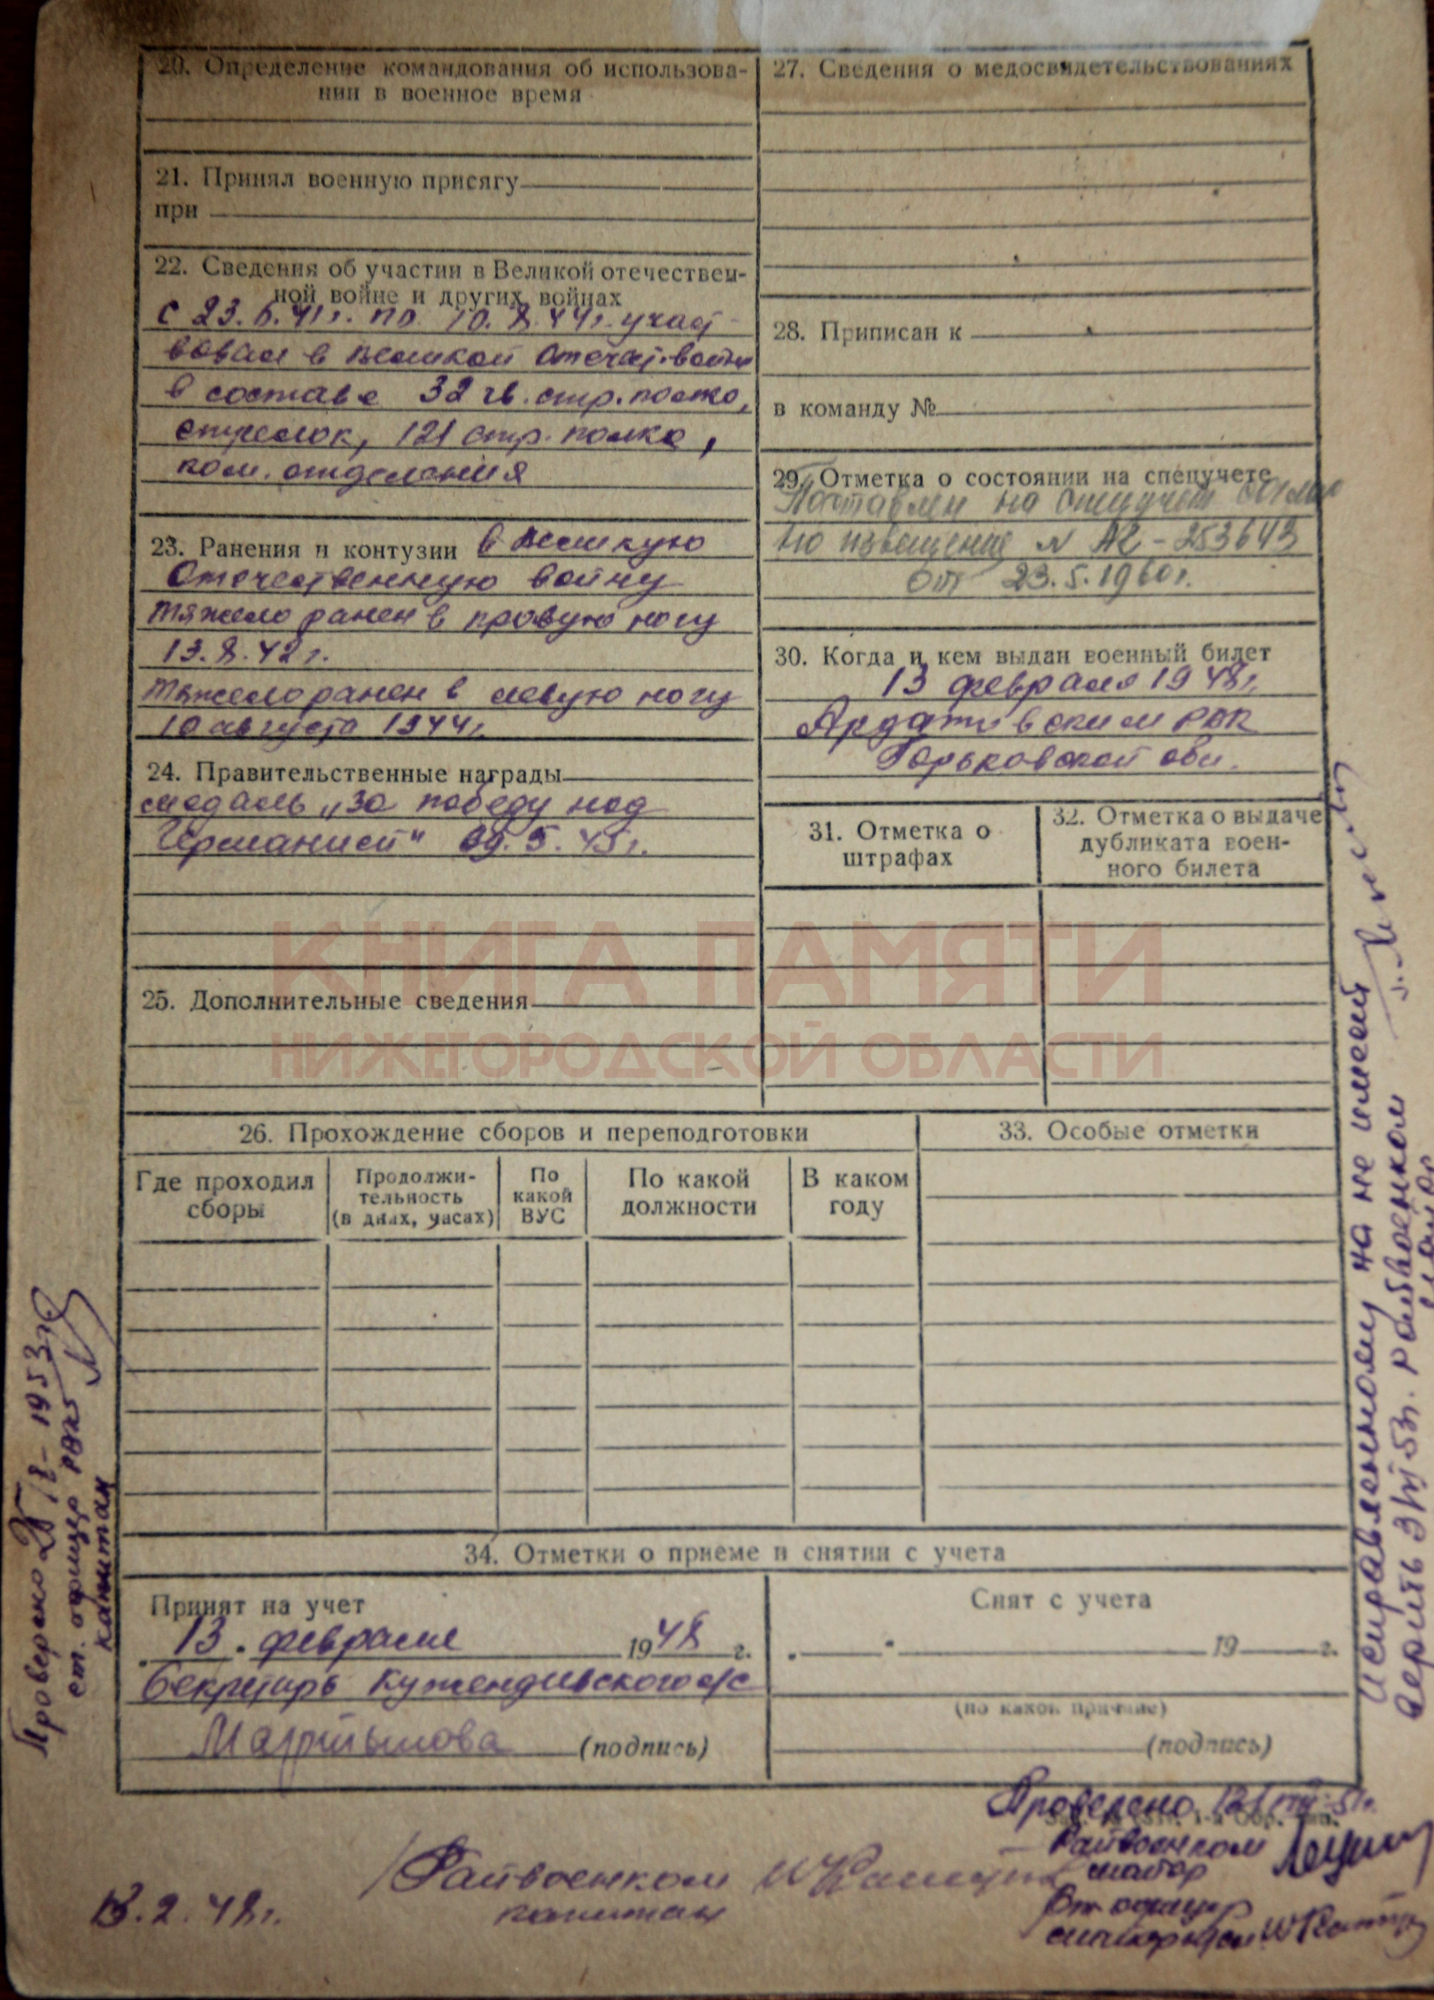 20. Определение командования об использова-
нии в военное время
21. Принял военную присягу
при
22. Сведения об участии в Великой отечествен-
ной войне и других войнах
С 23.6.41г. по 10.8.44г. участ-
вовал в Великой Отечест. войне
в составе 32 гв. стр. полка,
стрелок, 121 стр. полка,
ком. отделения
23. Ранения и контузии в Великую
Отечественную войну
тяжело ранен в правую ногу
13.8.42г.
тяжело ранен в левую ногу
10 августа 1944г.
24. Правительственные награды
медаль „За победу над
Германией“ 09.5.45г.
25. Дополнительные сведения
27. Сведения о медосвидетельствованиях
28. Приписан к
в команду №
29. Отметка о состоянии на спецучете
Поставлен на спецучет
по извещение N АД-253643
от 23.5.1960г.
30. Когда и кем выдан военный билет
13 февраля 1948г.
Ардатовским РВК
Горьковской обл.
31. Отметка о
штрафах
32. Отметка о выдаче
дубликата воен-
ного билета
КНИГА ПАМЯТИ
НИЖЕГОРОДСКОЙ ОБЛАСТИ
26. Прохождение сборов и переподготовки
Где проходил
сборы
Продолжи-
тельность
(в днях, часах)
По
какой
ВУС
По какой
должности
В каком
году
33. Особые отметки
34. Отметки о приеме и снятии с учета
Принят на учет
13. февраля 1948 г.
Секретарь Кужендеевского с/с
Мартынова (подпись)
Снят с учета
19 г.
(по какой причине)
(подпись)
Проверено 1953г
ст. офицер РВК
капитан
Исправленному на не имеей
верить 53г. Райвоенком
Проверено 51г.
Райвоенком
майор
Ст офицер
Райвоенком
капитан
13.2.48г.